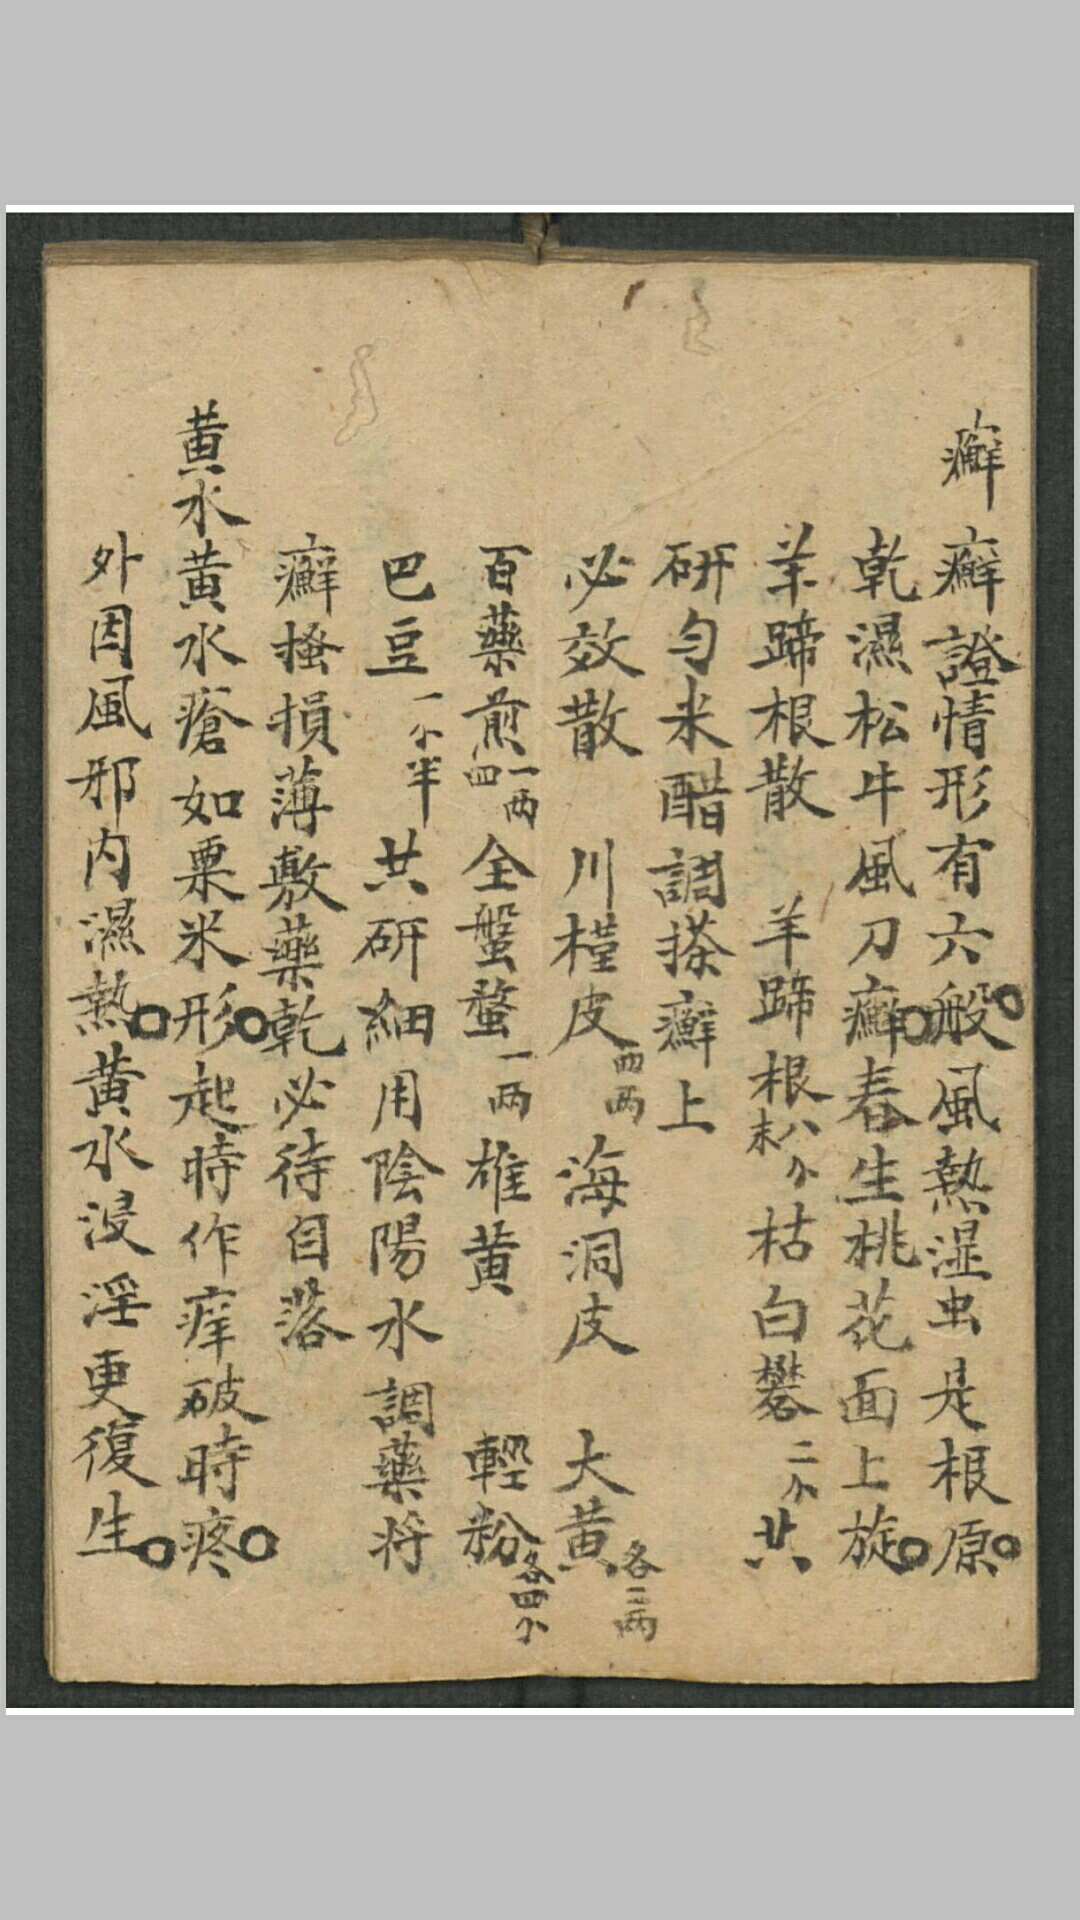 癬 癬證情形有六般○風熱湿虫是根原○
乾濕松牛風刀癬○春生桃花面上旋○
羊蹄根散 羊蹄根八分末 枯白礬二分 共
研勻米醋調搽癬上
必效散 川槿皮四两 海洞皮 大黄各二两
百藥煎一两四 全盤蝥一两 雄黄 輕粉各四分
巴豆一个半 共研細用陰陽水調藥将
癬搔損薄敷藥乾必待自落
黄水 黄水瘡如粟米形○起時作痒破時疼○
外因風邪内濕熱○黄水浸淫更復生○